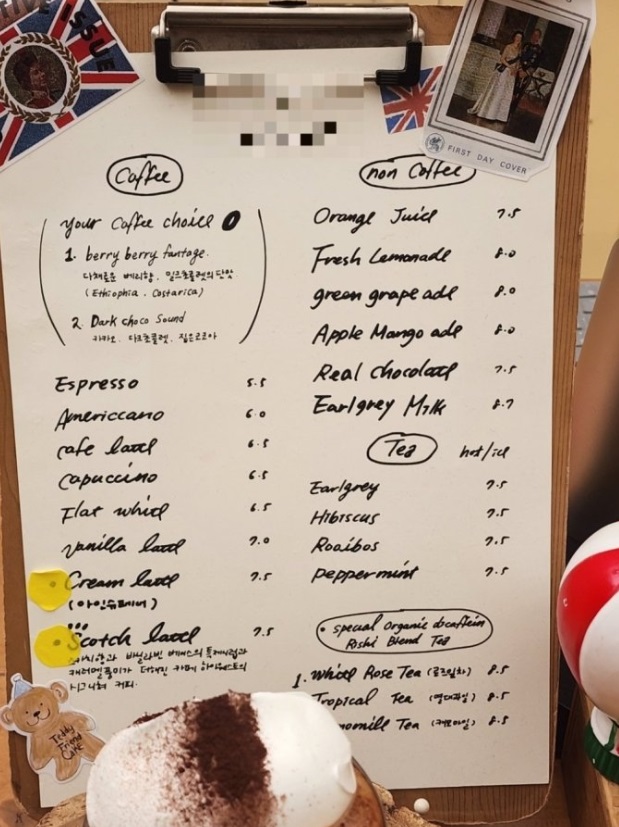 ISSUE
FIRST DAY COVER
Coffee
your Coffee choice
1. berry berry fantage.
다채로운 베리향, 밀크초콜렛의 단맛
(Ethiophia, Costarica)
2. Dark choco Sound
카카오, 다크초콜렛, 짙은코코아
Espresso 5.5
Americcano 6.0
cafe latte 6.5
Capuccino 6.5
Flat white 6.5
Vanilla latte 7.0
Cream latte 7.5
(아인슈페너)
Scotch latte 7.5
캐러멜풍미가 더해진 카페 하이웨스트의
시그니쳐 커피.
Teddy
Friend
Cafe
non Coffee
Orange Juice 7.5
Fresh Lemonade 8.0
green grape ade 8.0
Apple Mango ade 8.0
Real chocolate 7.5
Earlgrey Milk 8.7
Tea hot/ice
Earlgrey 7.5
Hibiscus 7.5
Rooibos 7.5
peppermint 7.5
• special Organic decaffein
Rishi Blend Tea
1. White Rose Tea (로즈잎차) 8.5
Tropical Tea (열대과일) 8.5
momill Tea (캐모마일) 8.5